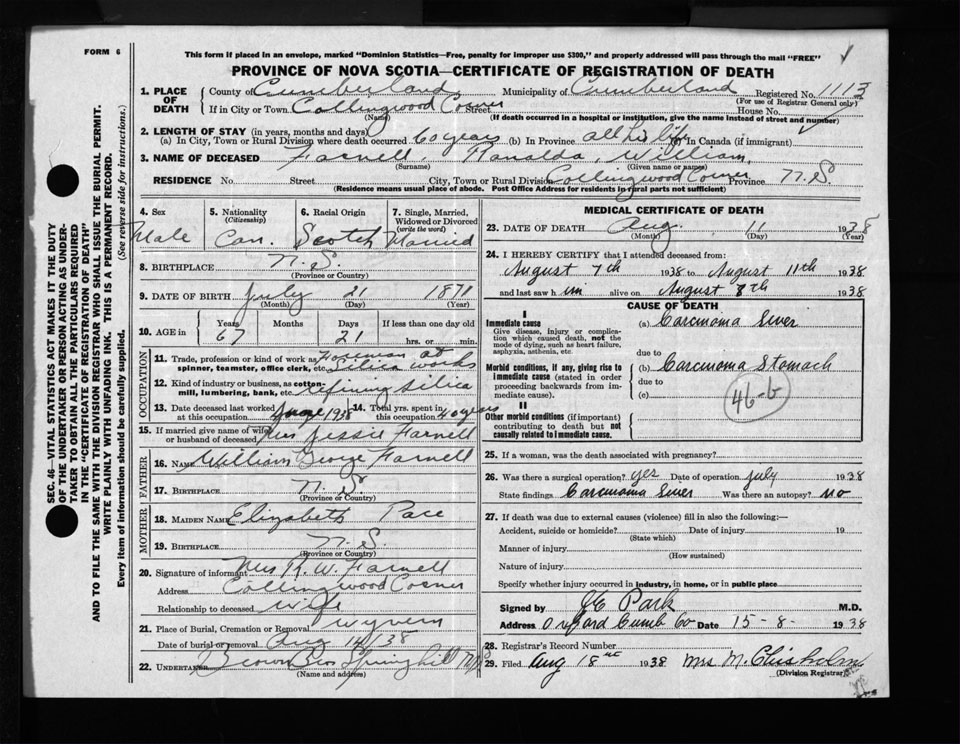 FORM 6
This form if placed in an envelope, marked "Dominion Statistics—Free, penalty for improper use $300," and properly addressed will pass through the mail "FREE"
PROVINCE OF NOVA SCOTIA—CERTIFICATE OF REGISTRATION OF DEATH
1. PLACE OF DEATH
County of Cumberland Municipality of Cumberland Registered No. 1113
(For use of Registrar General only)
If in City or Town Collingwood Corner Street House No.
(Name) (If death occurred in a hospital or institution, give the name instead of street and number)
2. LENGTH OF STAY (in years, months and days)
(a) In City, Town or Rural Division where death occurred 60 years (b) In Province all his life (c) In Canada (if immigrant)
3. NAME OF DECEASED Farnell, William,
(Surname) (Given name or names)
RESIDENCE No. Street City, Town or Rural Division Collingwood Corner Province N.S.
(Residence means usual place of abode. Post Office Address for residents in rural parts not sufficient)
SEC. 46—VITAL STATISTICS ACT MAKES IT THE DUTY
OF THE UNDERTAKER OR PERSON ACTING AS UNDER-
TAKER TO OBTAIN ALL THE PARTICULARS REQUIRED
IN THE "CERTIFICATE OF REGISTRATION OF DEATH"
AND TO FILE THE SAME WITH THE DIVISION REGISTRAR WHO SHALL ISSUE THE BURIAL PERMIT.
WRITE PLAINLY WITH UNFADING INK. THIS IS A PERMANENT RECORD.
Every item of information should be carefully supplied. (See reverse side for instructions.)
4. Sex Male
5. Nationality (Citizenship) Can.
6. Racial Origin Scotch
7. Single, Married, Widowed or Divorced (write the word) Married
8. BIRTHPLACE N.S.
(Province or Country)
9. DATE OF BIRTH July 21 1871
(Month) (Day) (Year)
10. AGE in Years 67 Months Days 21 If less than one day old hrs. or min.
OCCUPATION
11. Trade, profession or kind of work as spinner, teamster, office clerk, etc. Foreman at Silica works
12. Kind of industry or business, as cotton-mill, lumbering, bank, etc. refining silica
13. Date deceased last worked at this occupation 1938 14. Total yrs. spent in this occupation 40 years
15. If married give name of wife or husband of deceased Mrs Jessie Farnell
FATHER
16. NAME William George Farnell
17. BIRTHPLACE N.S.
(Province or Country)
MOTHER
18. MAIDEN NAME Elizabeth Pace
19. BIRTHPLACE N.S
(Province or Country)
20. Signature of informant Mrs R. W. Farnell
Address Collingwood Corner
Relationship to deceased wife
21. Place of Burial, Cremation or Removal Wyvern
Date of burial or removal Aug 14/38
22. UNDERTAKER Brown Bros Springhill N.S
(Name and address)
MEDICAL CERTIFICATE OF DEATH
23. DATE OF DEATH Aug. 11 1938
(Month) (Day) (Year)
24. I HEREBY CERTIFY that I attended deceased from:
August 7th 1938 to August 11th 1938
and last saw him alive on August 8th 1938
CAUSE OF DEATH
I
Immediate cause
Give disease, injury or complication which caused death, not the mode of dying, such as heart failure, asphyxia, asthenia, etc.
(a) Carcinoma Liver
due to
Morbid conditions, if any, giving rise to immediate cause (stated in order proceeding backwards from immediate cause).
(b) Carcinoma Stomach
due to
(c)
46-b
II
Other morbid conditions (if important) contributing to death but not causally related to immediate cause.
25. If a woman, was the death associated with pregnancy?
26. Was there a surgical operation? yes Date of operation July 1938
State findings Carcinoma Liver Was there an autopsy? no
27. If death was due to external causes (violence) fill in also the following:—
Accident, suicide or homicide? Date of injury 19
(State which)
Manner of injury
(How sustained)
Nature of injury
Specify whether injury occurred in industry, in home, or in public place
Signed by Park M.D.
Address Oxford Cumb Co Date 15-8- 1938
28. Registrar's Record Number
29. Filed Aug 18 1938 Mrs M. Chisholm
(Division Registrar)